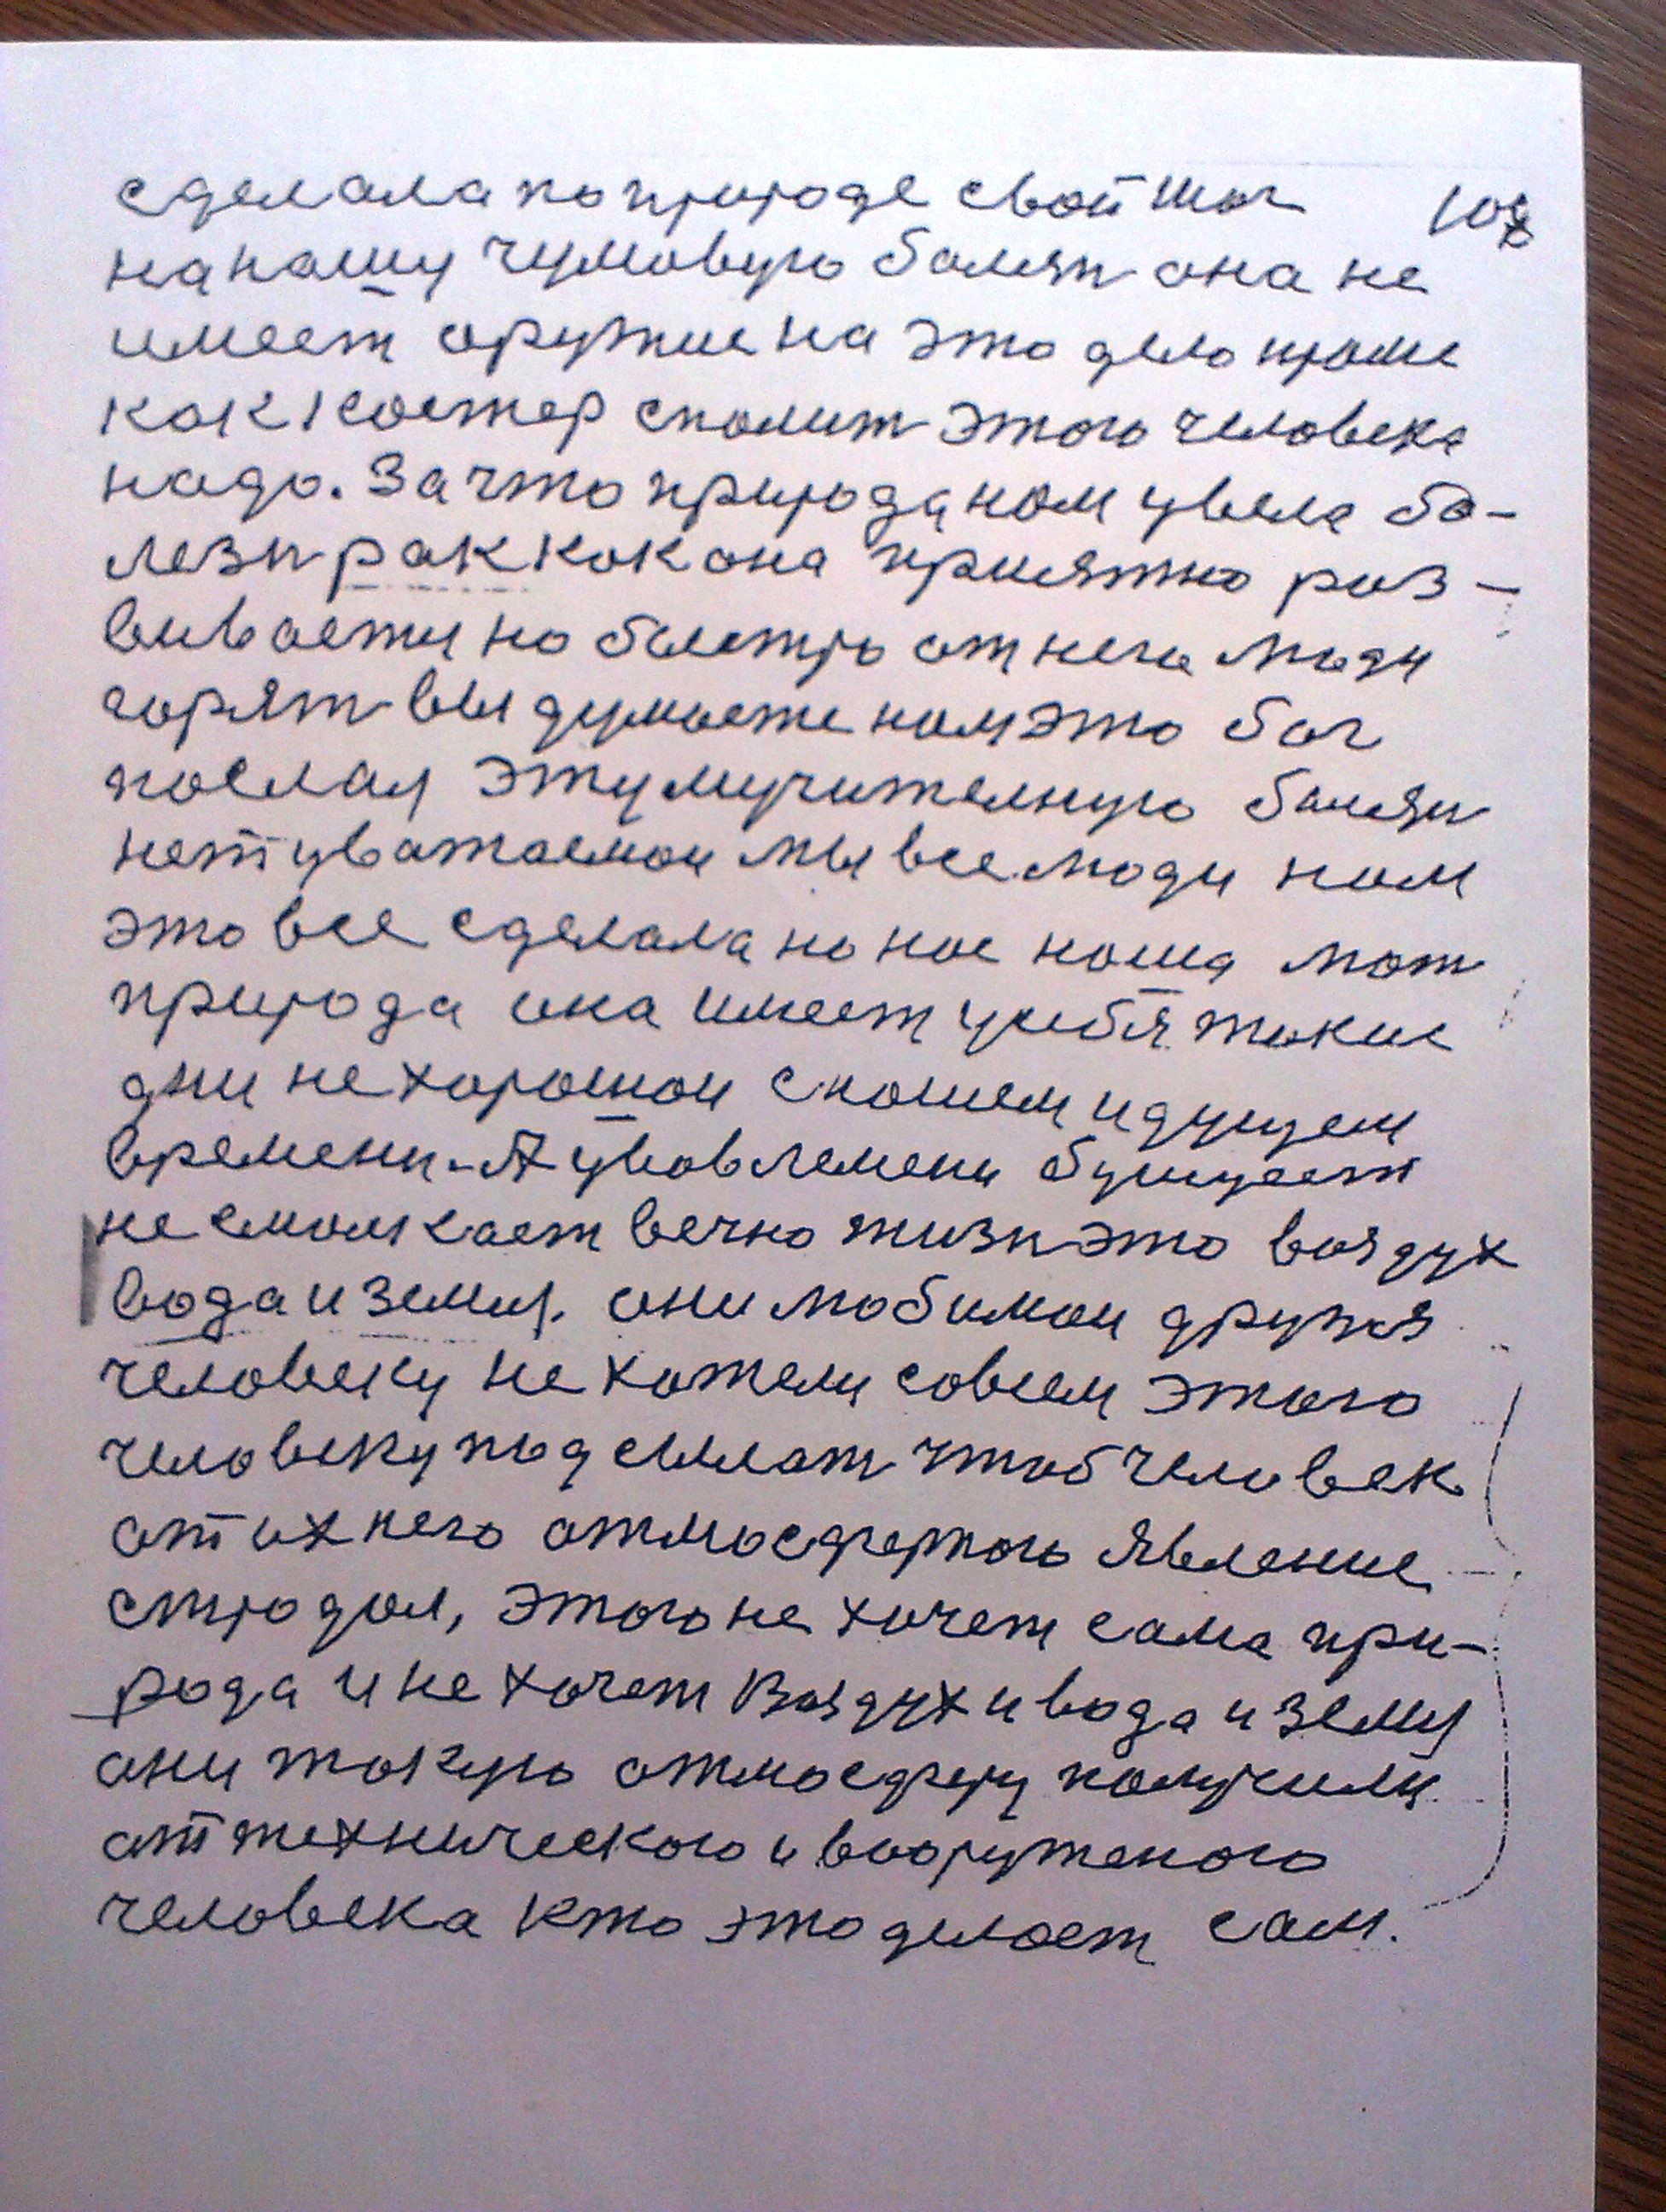 сделала по природе свой шаг 108
на нашу чумовуюболезн она не
имеет оружие на это дело кроме
как костер спалит этого человека
надо. За что природа нам увела бо-
лезн рак как она приятно раз-
вивается но быстро от нега люди
горят вы думаете нам это бог
послал эту мучителную болезн
нет уважаемаи мы все люди нам
это все сделала на нас наша мат
природа она имеет у себя такие
дни не хорошаи с нашем идущем
времени. А у времени бушует
не смолкает вечно жизн это воздух
вода и земля. они любимаи друзя
человеку не хотели совсем этого
человеку подсылат чтоб человек
от ихнего атмосферного явление
страдал, этого не хочет сама при-
рода и не хочет Воздух и вода и земля
они такую атмосферу получили
от технического и вооруженого
человека кто это делает сам.